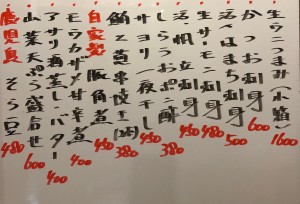 生ウニつまみ(小箱) 1600
かつお刺身 600
活〆はまち刺身 500
生サーモン刺身 480
活〆帆立刺身 450
しらすおろしポン酢 380
サヨリ一夜干し 450
鮪と黄韮餃子(2ヶ) 380
自家製豚角煮 450
モウカザメ甘辛煮 400
アサリ酒蒸しバター 400
山菜天ぷら盛合せ 600
鹿児島そら豆 480